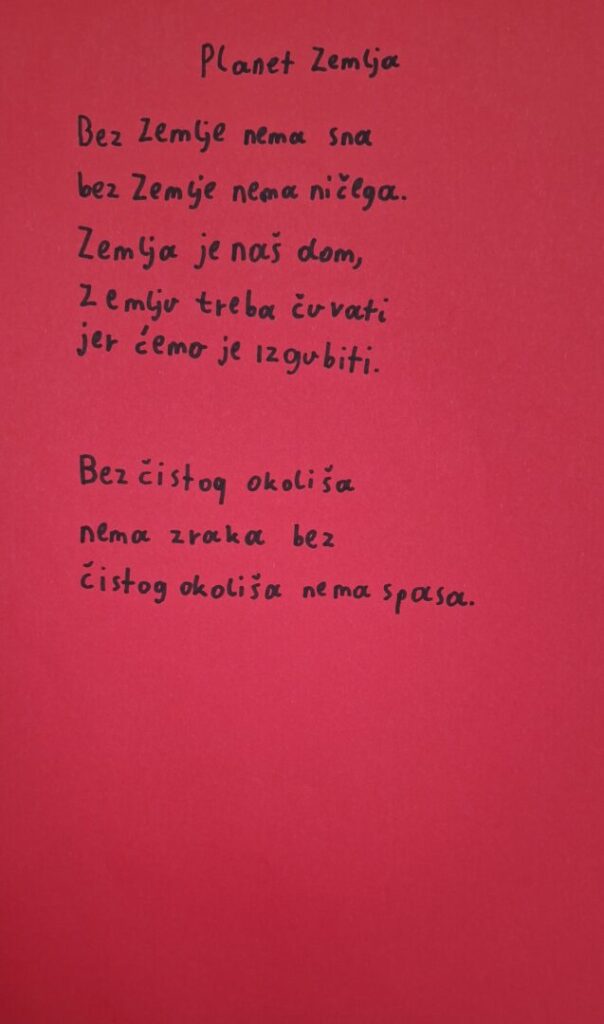 Planet Zemlja
Bez Zemlje nema sna
bez Zemlje nema ničega.
Zemlja je naš dom,
Zemlju treba čuvati
jer ćemo je izgubiti.
Bez čistog okoliša
nema zraka bez
čistog okoliša nema spasa.